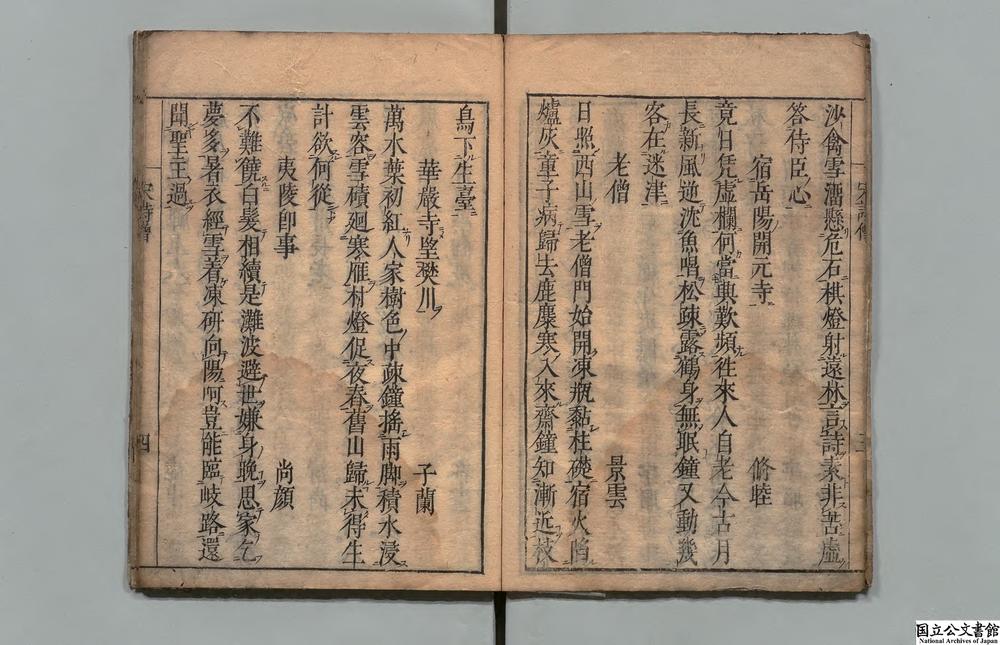 沙禽雪溜懸危石棋燈射遠林言詩素非苦虛
答侍臣心
宿岳陽開元寺 脩睦
竟日凭虛欄何當興歎頻徃來人自老今古月
長新風逆沈魚唱松疎露鶴身無眠鐘又動幾
客在迷津
老僧 景雲
日照西山雪老僧門始開凍瓶黏柱礎宿火陷
爐灰童子病歸去鹿麛寒入來齋鐘知漸近枝
鳥下生臺
華嚴寺望樊川 子蘭
萬木葉初紅人家樹色中疎鐘搖雨脚積水浸
雲容雪磧廻寒雁村燈促夜舂舊山歸未得生
計欲何從
夷陵即事 尚顏
不難饒白髮相續是灘波避世嫌身晚思家乞
夢多暑衣經雪着凍研向陽呵豈能臨岐路還
聞聖主過
四
国立公文書館
National Archives of Japan